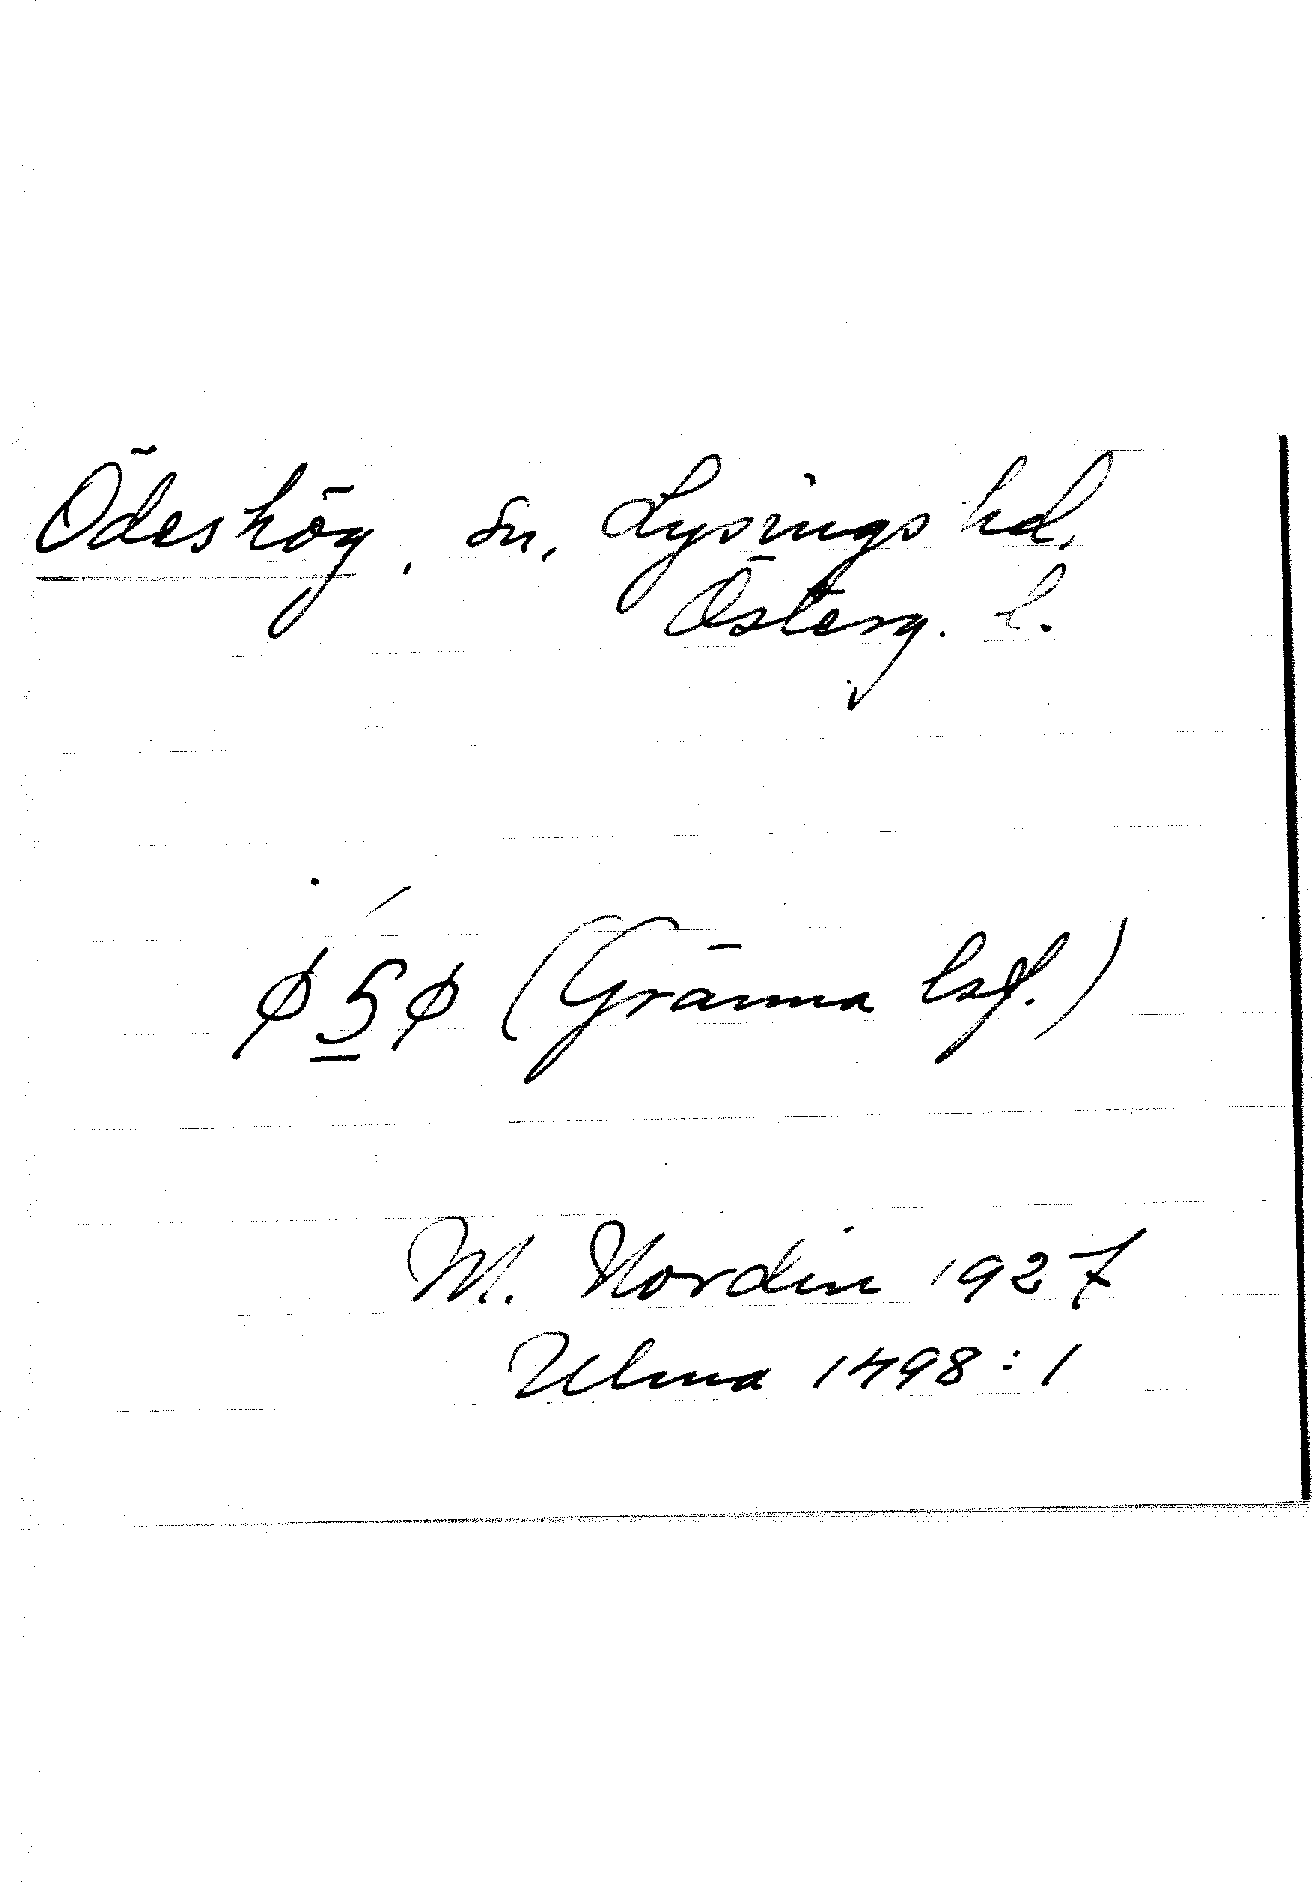 Ödeshög, sn, Lysings hd,
Österg. l.
(Gränna lsf.)
M. Nordin 1927
Ulma 1498:1